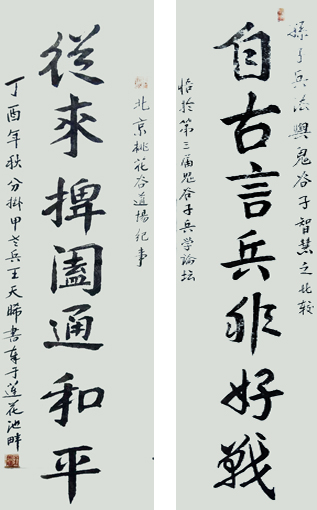 孫子兵法與鬼谷子智慧之比較
自古言兵非好戰
恰於第三届鬼谷子兵学論坛
北京桃花谷道場纪事
從來捭闔通和平
丁酉年秋分掛甲老兵王天晞書于蓮花池畔